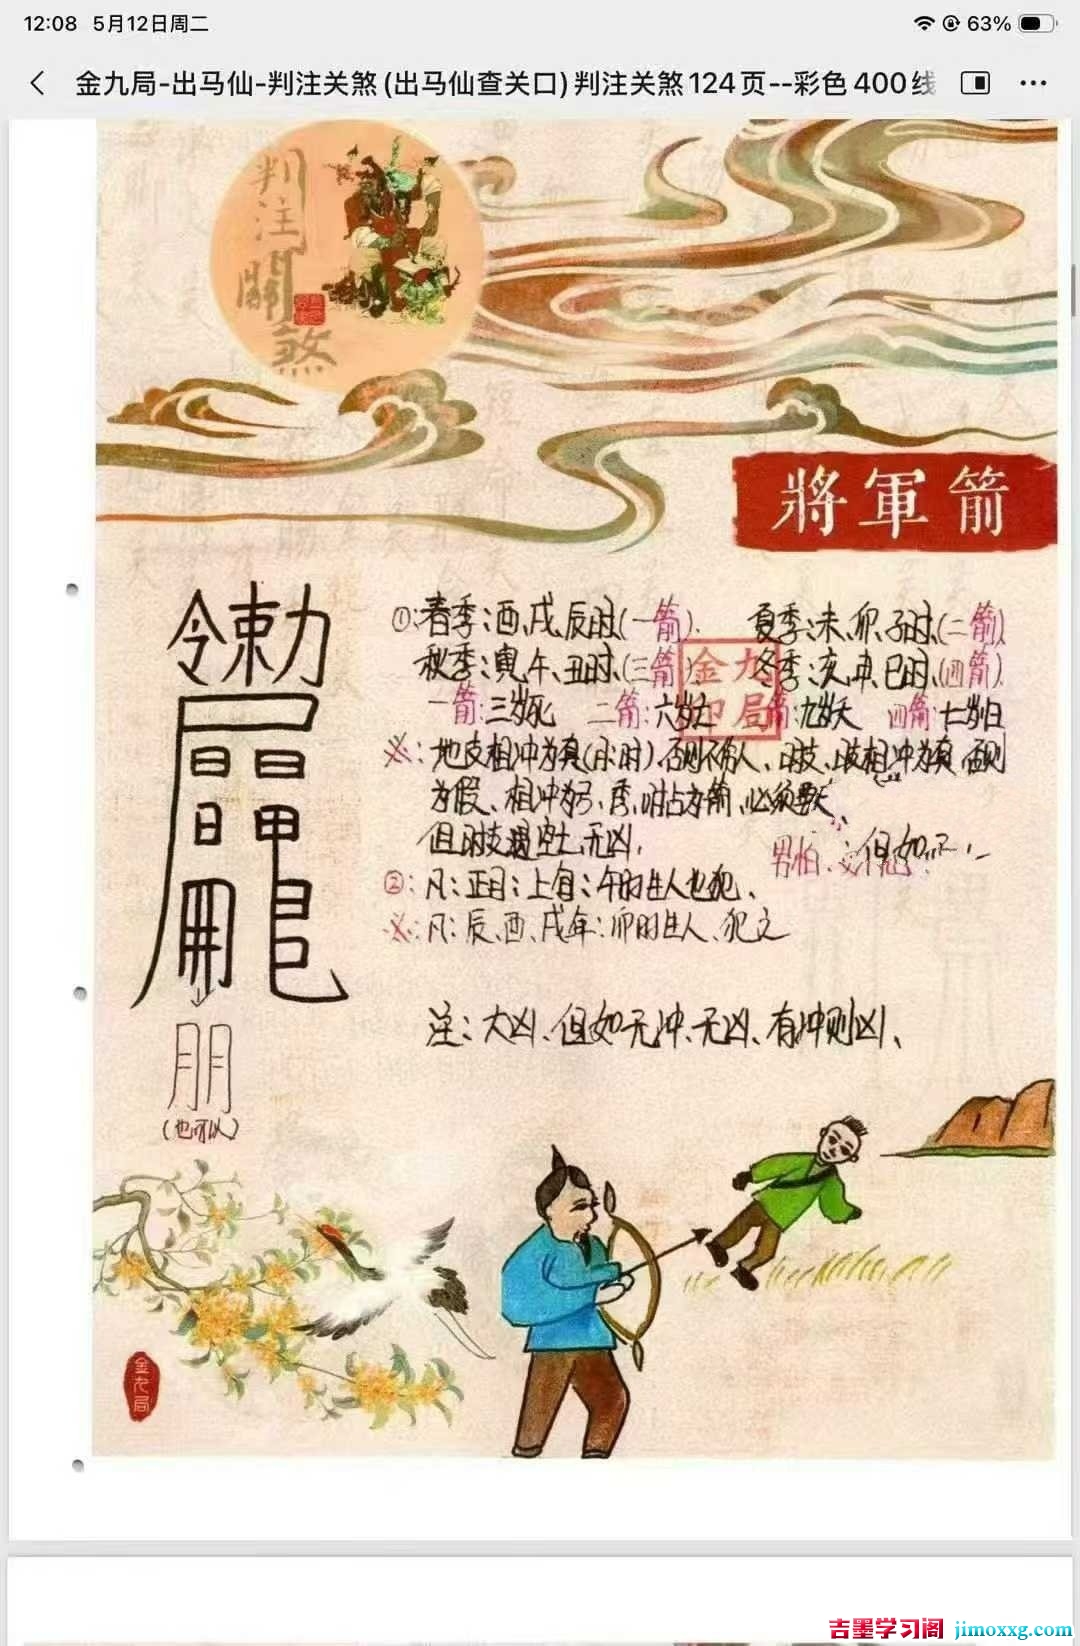 12:08 5月12日周二
63%
金九局-出马仙-判注关煞(出马仙查关口)判注关煞124页--彩色400线
判注關煞
將軍箭
①:春季:酉、戌、辰时(一箭). 夏季:未、卯、子时(二箭)
秋季:寅、午、丑时(三箭) 冬季:亥、申、巳时(四箭)
金九局印
一箭:三岁死 二箭:六岁 箭:九岁夭 四箭:七岁归
※:地支相冲为真(月时),否则不伤人、时支、相冲为真,否则
为假、相冲为弓、季、时占为箭、必须
但时支遇空亡,无凶,
男怕 但如
②:凡:正月:上旬:午时生人也犯、
※:凡:辰、酉、戌年:卯时生人、犯之
注:大凶、但如无冲、无凶、有冲则凶、
朋
(也可以)
金九局
吉墨学习阁 jimoxxg.com